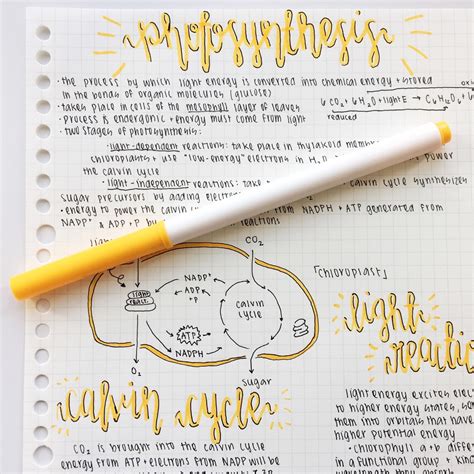 photosynthesis
• the process by which light energy is converted into chemical energy + stored
in the bonds of organic molecules (glulose)
• takes place in cells of the mesophyll layer of leaves
• process is endergonic + energy must come from light
• two stages of photosynthesis:
6 CO₂ + 6 H₂O + light E → C₆H₁₂O₆ +
reduced
• light-dependent reactions: take place in thylakoid
chloroplasts + use "low-energy" electrons in H₂O
power
the calvin cycle
• light-independent reactions: take
calvin cycle synthesizes
sugar precursors by adding electrons
• energy to power the calvin
from NADPH + ATP generated from
NADP⁺ & ADP + P by
reactions
CO₂
NADP⁺
ADP
+P
ATP
NADPH
light
react.
calvin
cycle
O₂
sugar
「chloroplast」
light
calvin cycle
CO₂ is brought into the calvin cycle
energy from ATP + electrons from NADPH
will be used
light energy excites
to higher energy states,
them into orbitals that have
higher potential energy
• chlorophyll a + b
in a functional group +